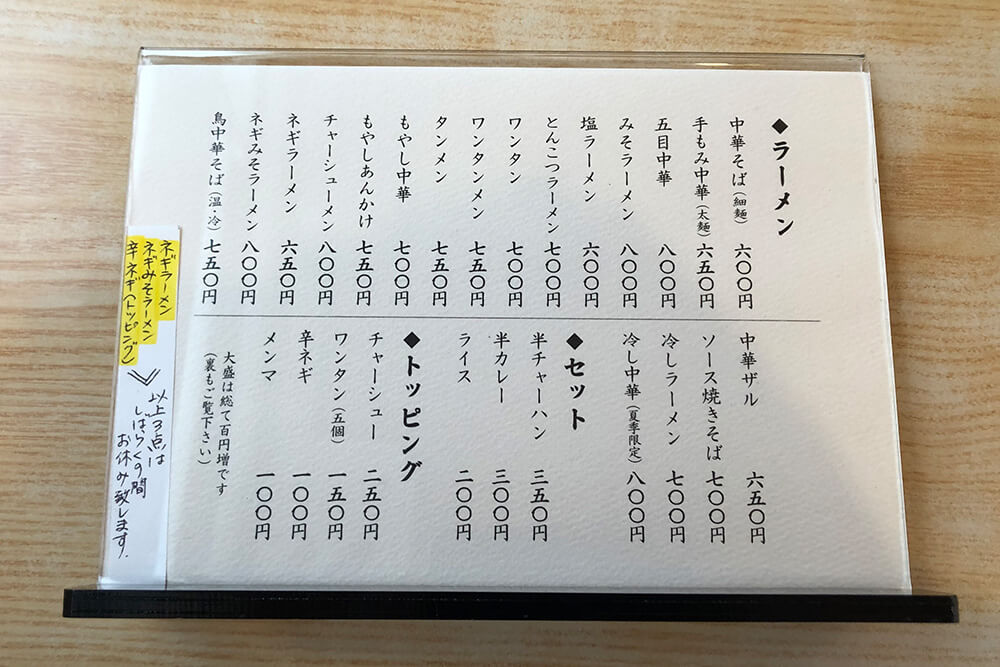 ◆ラーメン
中華そば（細麺） 六〇〇円
手もみ中華（太麺） 六五〇円
五目中華 八〇〇円
みそラーメン 八〇〇円
塩ラーメン 六〇〇円
とんこつラーメン 七〇〇円
ワンタン 七〇〇円
ワンタンメン 七五〇円
タンメン 七五〇円
もやし中華 七〇〇円
もやしあんかけ 七五〇円
チャーシューメン 八〇〇円
ネギラーメン 六五〇円
ネギみそラーメン 八〇〇円
鳥中華そば（温・冷） 七五〇円
中華ザル 六五〇円
ソース焼きそば 七〇〇円
冷しラーメン 七〇〇円
冷し中華（夏季限定） 八〇〇円
◆セット
半チャーハン 三五〇円
半カレー 三〇〇円
ライス 二〇〇円
◆トッピング
チャーシュー 二五〇円
ワンタン（五個） 一五〇円
辛ネギ 一〇〇円
メンマ 一〇〇円
大盛は総て百円増です
（裏もご覧下さい）
ネギラーメン
ネギみそラーメン
辛ネギ（トッピング）
以上3点は
しばらくの間
お休み致します.